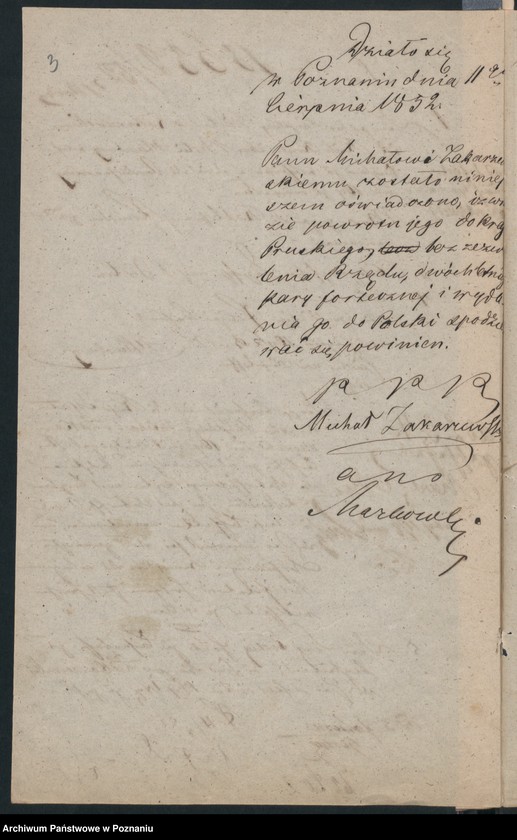 3
Działo się
w Poznaniu dnia 11go
Sierpnia 1832.
Panu Michałowi Zakrzew
skiemu zostało niniej
szem oświadczono, iż w ra
zie powrotu jego do Kraju
Pruskiego, bez zezwo
lenia Rządu, dwóchletniej
kary fortecznej i wyda
nia go do Polski spodzie
wać się powinien.
p p p
Michał Zakrzewski
a u s
Markowski
Archiwum Państwowe w Poznaniu